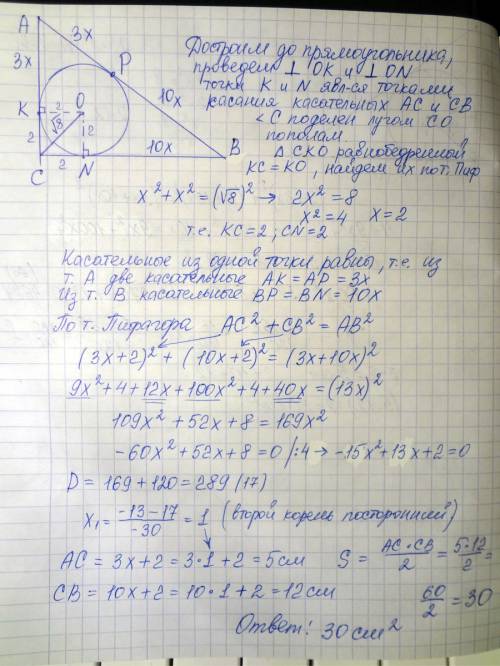 A
3x
3x
P
K
2
O
10x
√8
2
2
C
2
N
10x
B
Достроим до прямоугольника,
проведем ⊥ OK и ⊥ ON
точки K и N явл-ся точками
касания касательных AC и CB
<C поделен лучом CO
пополам.
Δ CKO равнобедренный
KC=KO, найдем их по т. Пиф
x²+x²=(√8)² → 2x²=8
x²=4 x=2
т.е. KC=2; CN=2
Касательные из одной точки равны, т.е. из
т. A две касательные AK=AP=3x
Из т. B касательные BP=BN=10x
По т. Пифагора AC²+CB²=AB²
(3x+2)²+(10x+2)²=(3x+10x)²
9x²+4+12x+100x²+4+40x=(13x)²
109x²+52x+8=169x²
-60x²+52x+8=0 |:4 → -15x²+13x+2=0
D=169+120=289 (17)
x₁=(-13-17)/-30=1 (второй корень посторонний)
AC=3x+2=3·1+2=5см S=AC·CB/2=5·12/2=
CB=10x+2=10·1+2=12см 60/2=30
Ответ: 30 см²